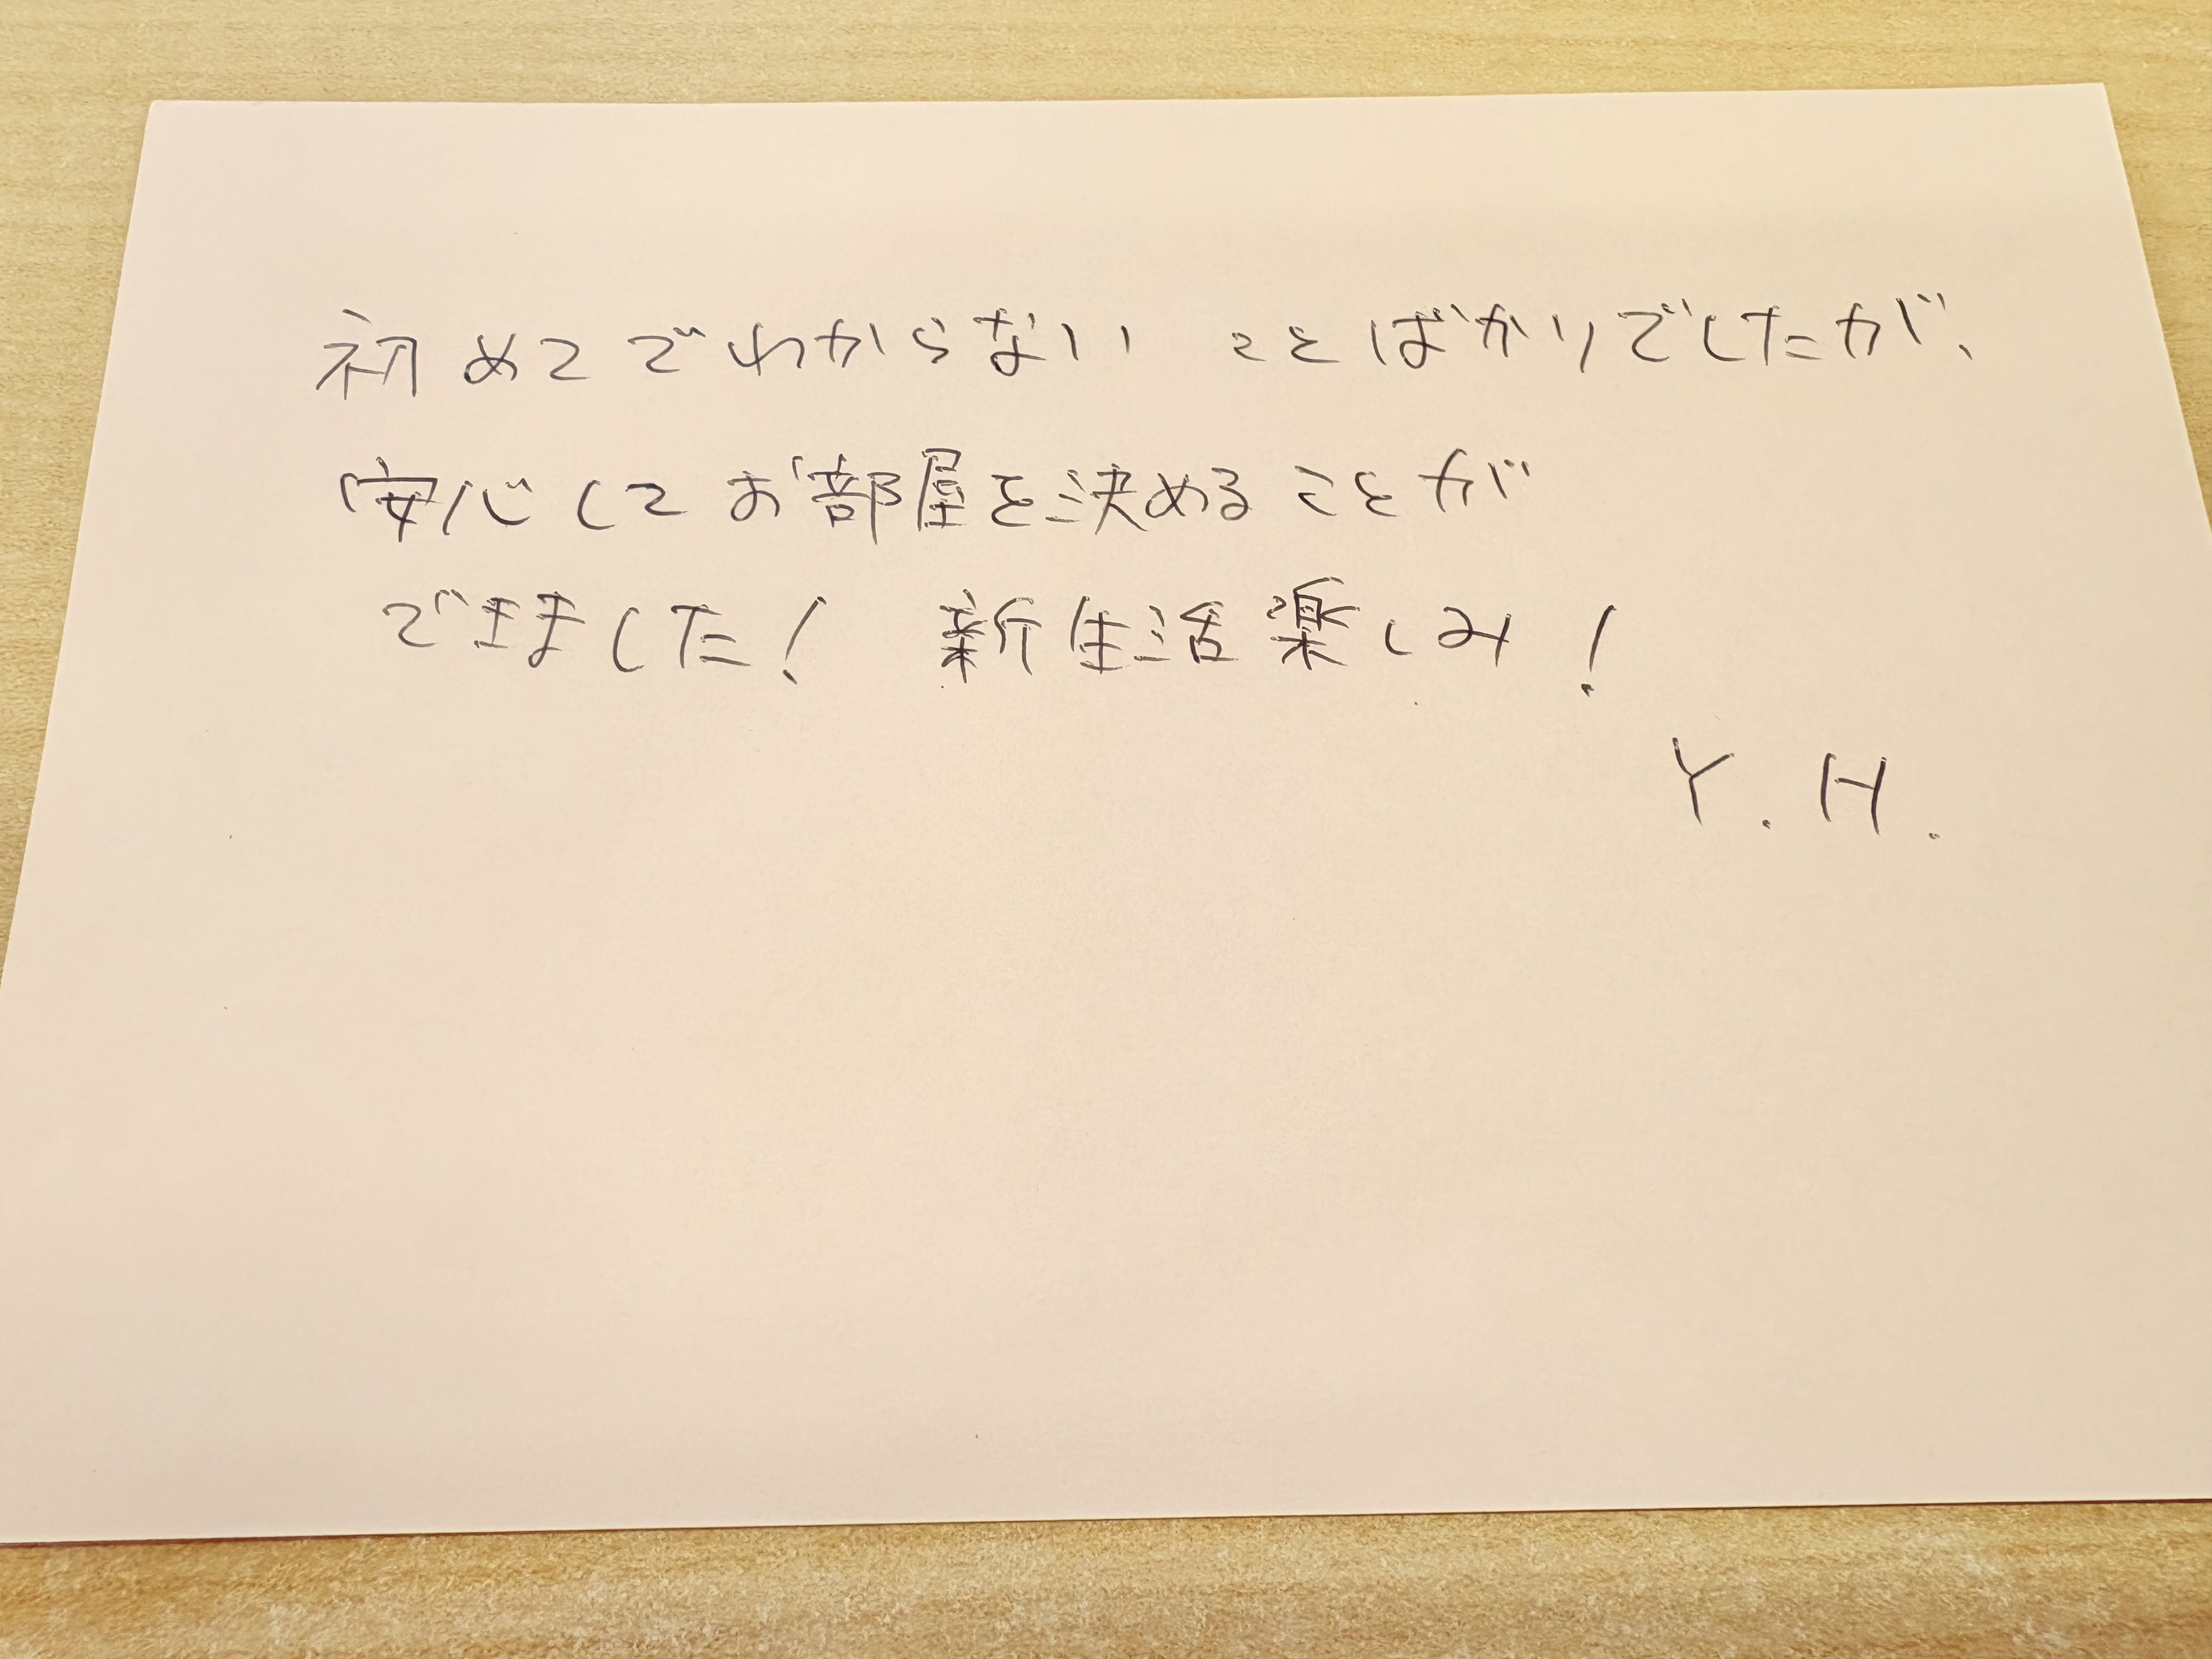 初めてでわからない ことばかりでしたが、
安心してお部屋を決めることが
できました! 新生活楽しみ!
Y.H.